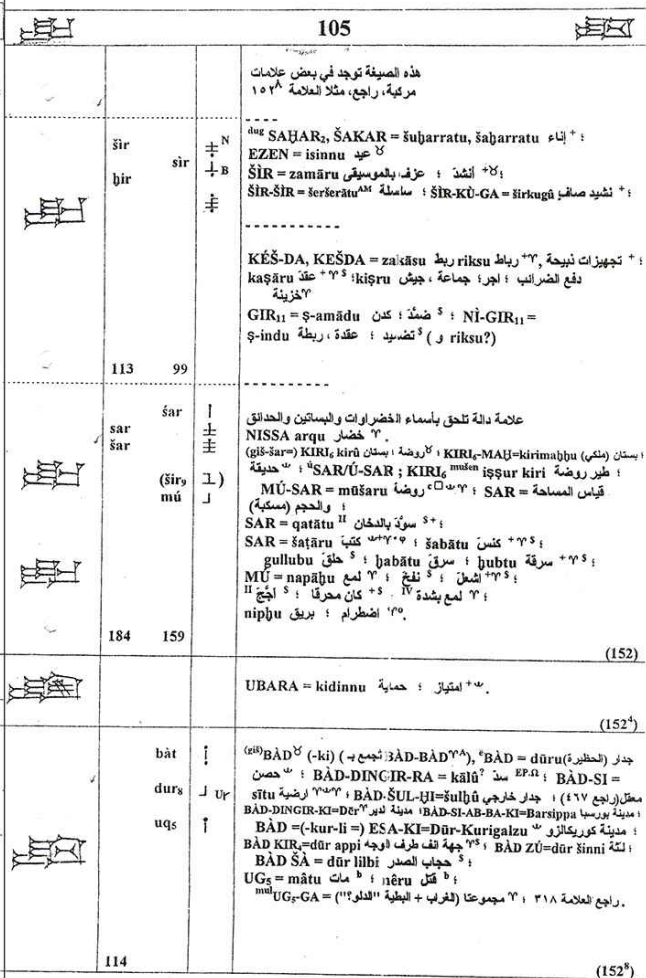 105
هذه الصيغة توجد في بعض علامات
مركبة، راجع، مثلا العلامة ١٥٢٨
šìr
sìr
ḫir
N
B
dug SAḪAR₂, ŠAKAR = šuḫarratu, šaḫarratu إناء + ؛
EZEN = isinnu عيد
ŠÌR = zamāru أنشد ؛ عزف بالموسيقى
ŠÌR-ŠÌR = šeršerātu AM سلسلة ؛ ŠÌR-KÙ-GA = širkugû نشيد صاف + ؛
KÉŠ-DA, KEŠDA = zakāsu ربط riksu رباط, تجهيزات نبيحة + ؛
kaṣāru عقد ؛ kiṣru دفع الضرائب ؛ اجر؛ جماعة ، جيش
خزينة
GIR₁₁ = ṣ-amādu ضمّد ؛ كدن S ؛ NÌ-GIR₁₁ =
ṣ-indu تضميد ؛ عقدة ، ربطة S ( و riksu?)
113 99
śar
sar
šar
(šir₉
mú
علامة دالة تلحق بأسماء الخضراوات والبساتين والحدائق
NISSA arqu خضار .
(giš-šar=) KIRI₆ kirû روضة ، بستان ؛ KIRI₆-MAḪ=kirimaḫḫu بستان (ملكي) ؛
حديقة ؛ ú SAR/Ú-SAR ; KIRI₆ mušen iṣṣur kiri طير روضة ؛
MÚ-SAR = mūšaru روضة ؛ SAR = قياس المساحة
والحجم (مسكبة) ؛
SAR = qatātu II سوّد بالدخان S+ ؛
SAR = šaṭāru كتب ؛ šabātu كنس ؛
gullubu حلق S ؛ ḫabātu سرق ؛ ḫubtu سرقة ؛
MÚ = napāḫu لمع ؛ نفخ S ؛ اشعل ؛
II أجّج S ؛ كان محرقا S+ ؛ IV لمع بشدة ؛
nipḫu اضطرام ؛ بريق .
184 159
(152)
UBARA = kidinnu امتياز ؛ حماية .
(152⁴)
bàt
dur₈
Ur
uq₅
(giš)BÀD (-ki) ( تجمع بـ BÀD-BÀD), BÀD = dūru جدار (الحظيرة)
حصن ؛ BÀD-DINGIR-RA = kālû? سد EP.Ω ؛ BÀD-SI =
sītu معقل(راجع ٤٦٧) ؛ جدار خارجي BÀD-ŠUL-ḪI=šulḫû ؛ ارضية
BÀD-DINGIR-KI=Dēr مدينة لدير ؛ BÀD-SI-AB-BA-KI=Barsippa مدينة بورسبا ؛
BÀD =(-kur-li =) ESA-KI=Dūr-Kurigalzu مدينة كوريكالزو ؛
BÀD KIR₄=dūr appi جهة انف طرف الوجه ؛ BÀD ZÚ=dūr šinni لثة ؛
BÀD ŠÀ = dūr lilbi حجاب الصدر S ؛
UG₅ = mâtu مات b ؛ nêru قتل b ؛
mul UG₅-GA = مجموعتا (الغراب + البطية "الدلو؟") ؛ راجع العلامة ٣١٨ .
114
(152⁸)